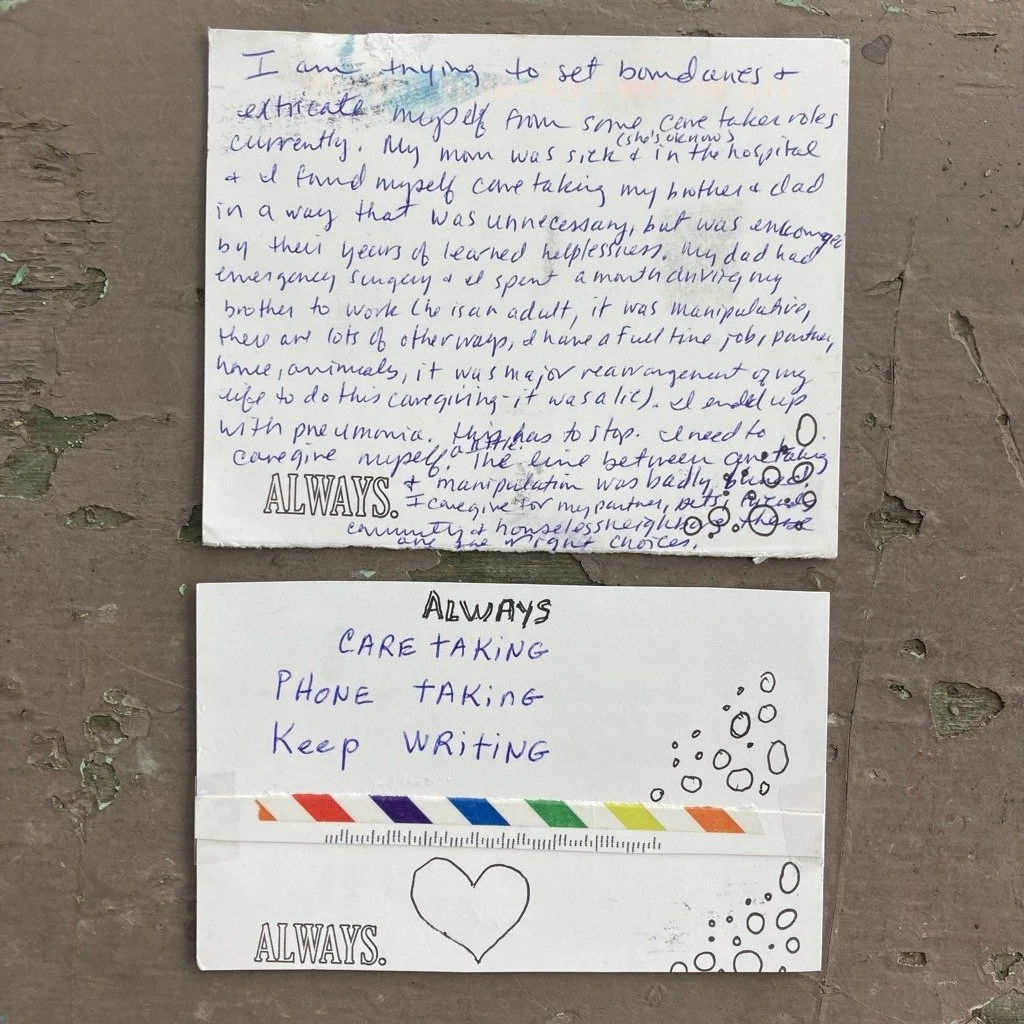 I am trying to set boundaries +
extricate myself from some care taker roles
(she's ok now)
currently. My mom was sick & in the hospital
+ I found myself care taking my brother + dad
in a way that was unnecessary, but was encouraged
by their years of learned helplessness. My dad had
emergency surgery + I spent a month driving my
brother to work (he is an adult, it was manipulative,
there are lots of other ways, I have a full time job, partner,
home, animals, it was major rearrangement of my
life to do this caregiving - it was a lie). I ended up
with pneumonia. this has to stop. I need to
caregive myself. The line between care taking
+ manipulation was badly blurred.
I caregive for my partner, pets,
community +
are the right choices.
ALWAYS.
ALWAYS
CARE TAKING
PHONE TAKING
Keep WRITING
ALWAYS.